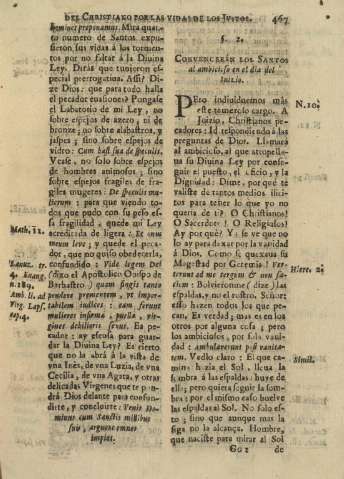 DEL CHRISTIANO POR LAS VIDAS DE LOS JUSTOS. 467
homines preponamus. Mira quan-
to numero de Santos expu-
sieron sus vidas à los tormen-
tos por no faltar à la Divina
Ley. Diràs que tuvieron es-
pecial prerrogativa. Assi? Di-
ze Dios: que para todo halla
el pecador evasiones? Pongase
el Labatorio de mi Ley, no
sobre espejos de azero, ni de
bronze; no sobre alabastros, y
jaspes; sino sobre espejos de
vidro: Cum basi sua de speculis.
Vease, no solo sobre espejos
de hombres animosos; sino
sobre espejos fragiles de fra-
giles mugeres: De speculis mu-
lierum: para que viendo to-
dos que pudo con su peso es-
sa fragilidad, quede mi Ley
acreditada de ligera: Et onus
meum leve; y quede el peca-
dor, que no quiso obedecerla,
confundido: Vide legem Dei
(dixo el Apostolico Obispo de
Barbastro) quam fingis tanto
pondere prementem, ut impor-
tabilem iudices: eam ferunt
mulieres infirmæ, puellæ, vir-
gines debiliores ferunt. Ea pe-
cador: ay escusa para guar-
dar la Divina Ley? Es cierto
que no la abrà à la vista de
vna Inès, de vna Luzia, de vna
Cecilia, de vna Agata, y otras
delicadas Virgenes que te pon-
drà Dios delante para confun-
dirte, y concluirte: Venit Do-
minus cum Sanctis millibus
suis, arguere omnes
impios.
Math. 11.
n. 289.
§. 2.
CONVENCERÀN LOS SANTOS
al ambicioso en el dia del
Juizio.
N. 10.
PEro individuemos mas
este temeroso cargo. A
Juizio, Christianos pe-
cadores: Id respondiendo à las
preguntas de Dios. Llama
al ambicioso, al que atropella-
va su Divina Ley por conse-
guir el puesto, el oficio, y la
Dignidad: Dime, por què te
valiste de tantos medios ilici-
tos para tener lo que yo no
queria de ti? O Christianos!
O Sacerdotes! O Religiosos!
Ay por què? Y se ve que no
lo ay para dexar por la vanidad
à Dios. Como se quexava su
Magestad por Geremias! Ver-
terunt ad me tergum & non fa-
ciem: Bolvieronme (dize) las
espaldas, y no el rostro. Señor:
esso hazen todos los que pe-
can. Es verdad; mas es en los
otros por alguna cosa; pero
los ambiciosos, por sola vani-
dad: ambulaverunt post vanita-
tem. Vedlo claro: El que ca-
mina hazia el Sol, lleva la
sombra à las espaldas: huye de
ella; pero quiera seguir la som-
bra: por el mismo caso buelve
las espaldas al Sol. No solo es-
to; sino que aunque mas la
siga no la alcança. Hombre,
que naciste para mirar al Sol
Simil.
Gg 2 de